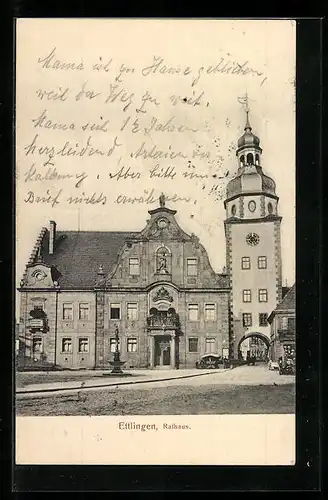 Mama ist zu Hause geblieben,
weil der Weg zu weit.
Mama seit 1/2 Jahren
herzleidend, Arterien
verkalkung. Aber bitte im
Brief nichts erwähnen.
Ettlingen, Rathaus.